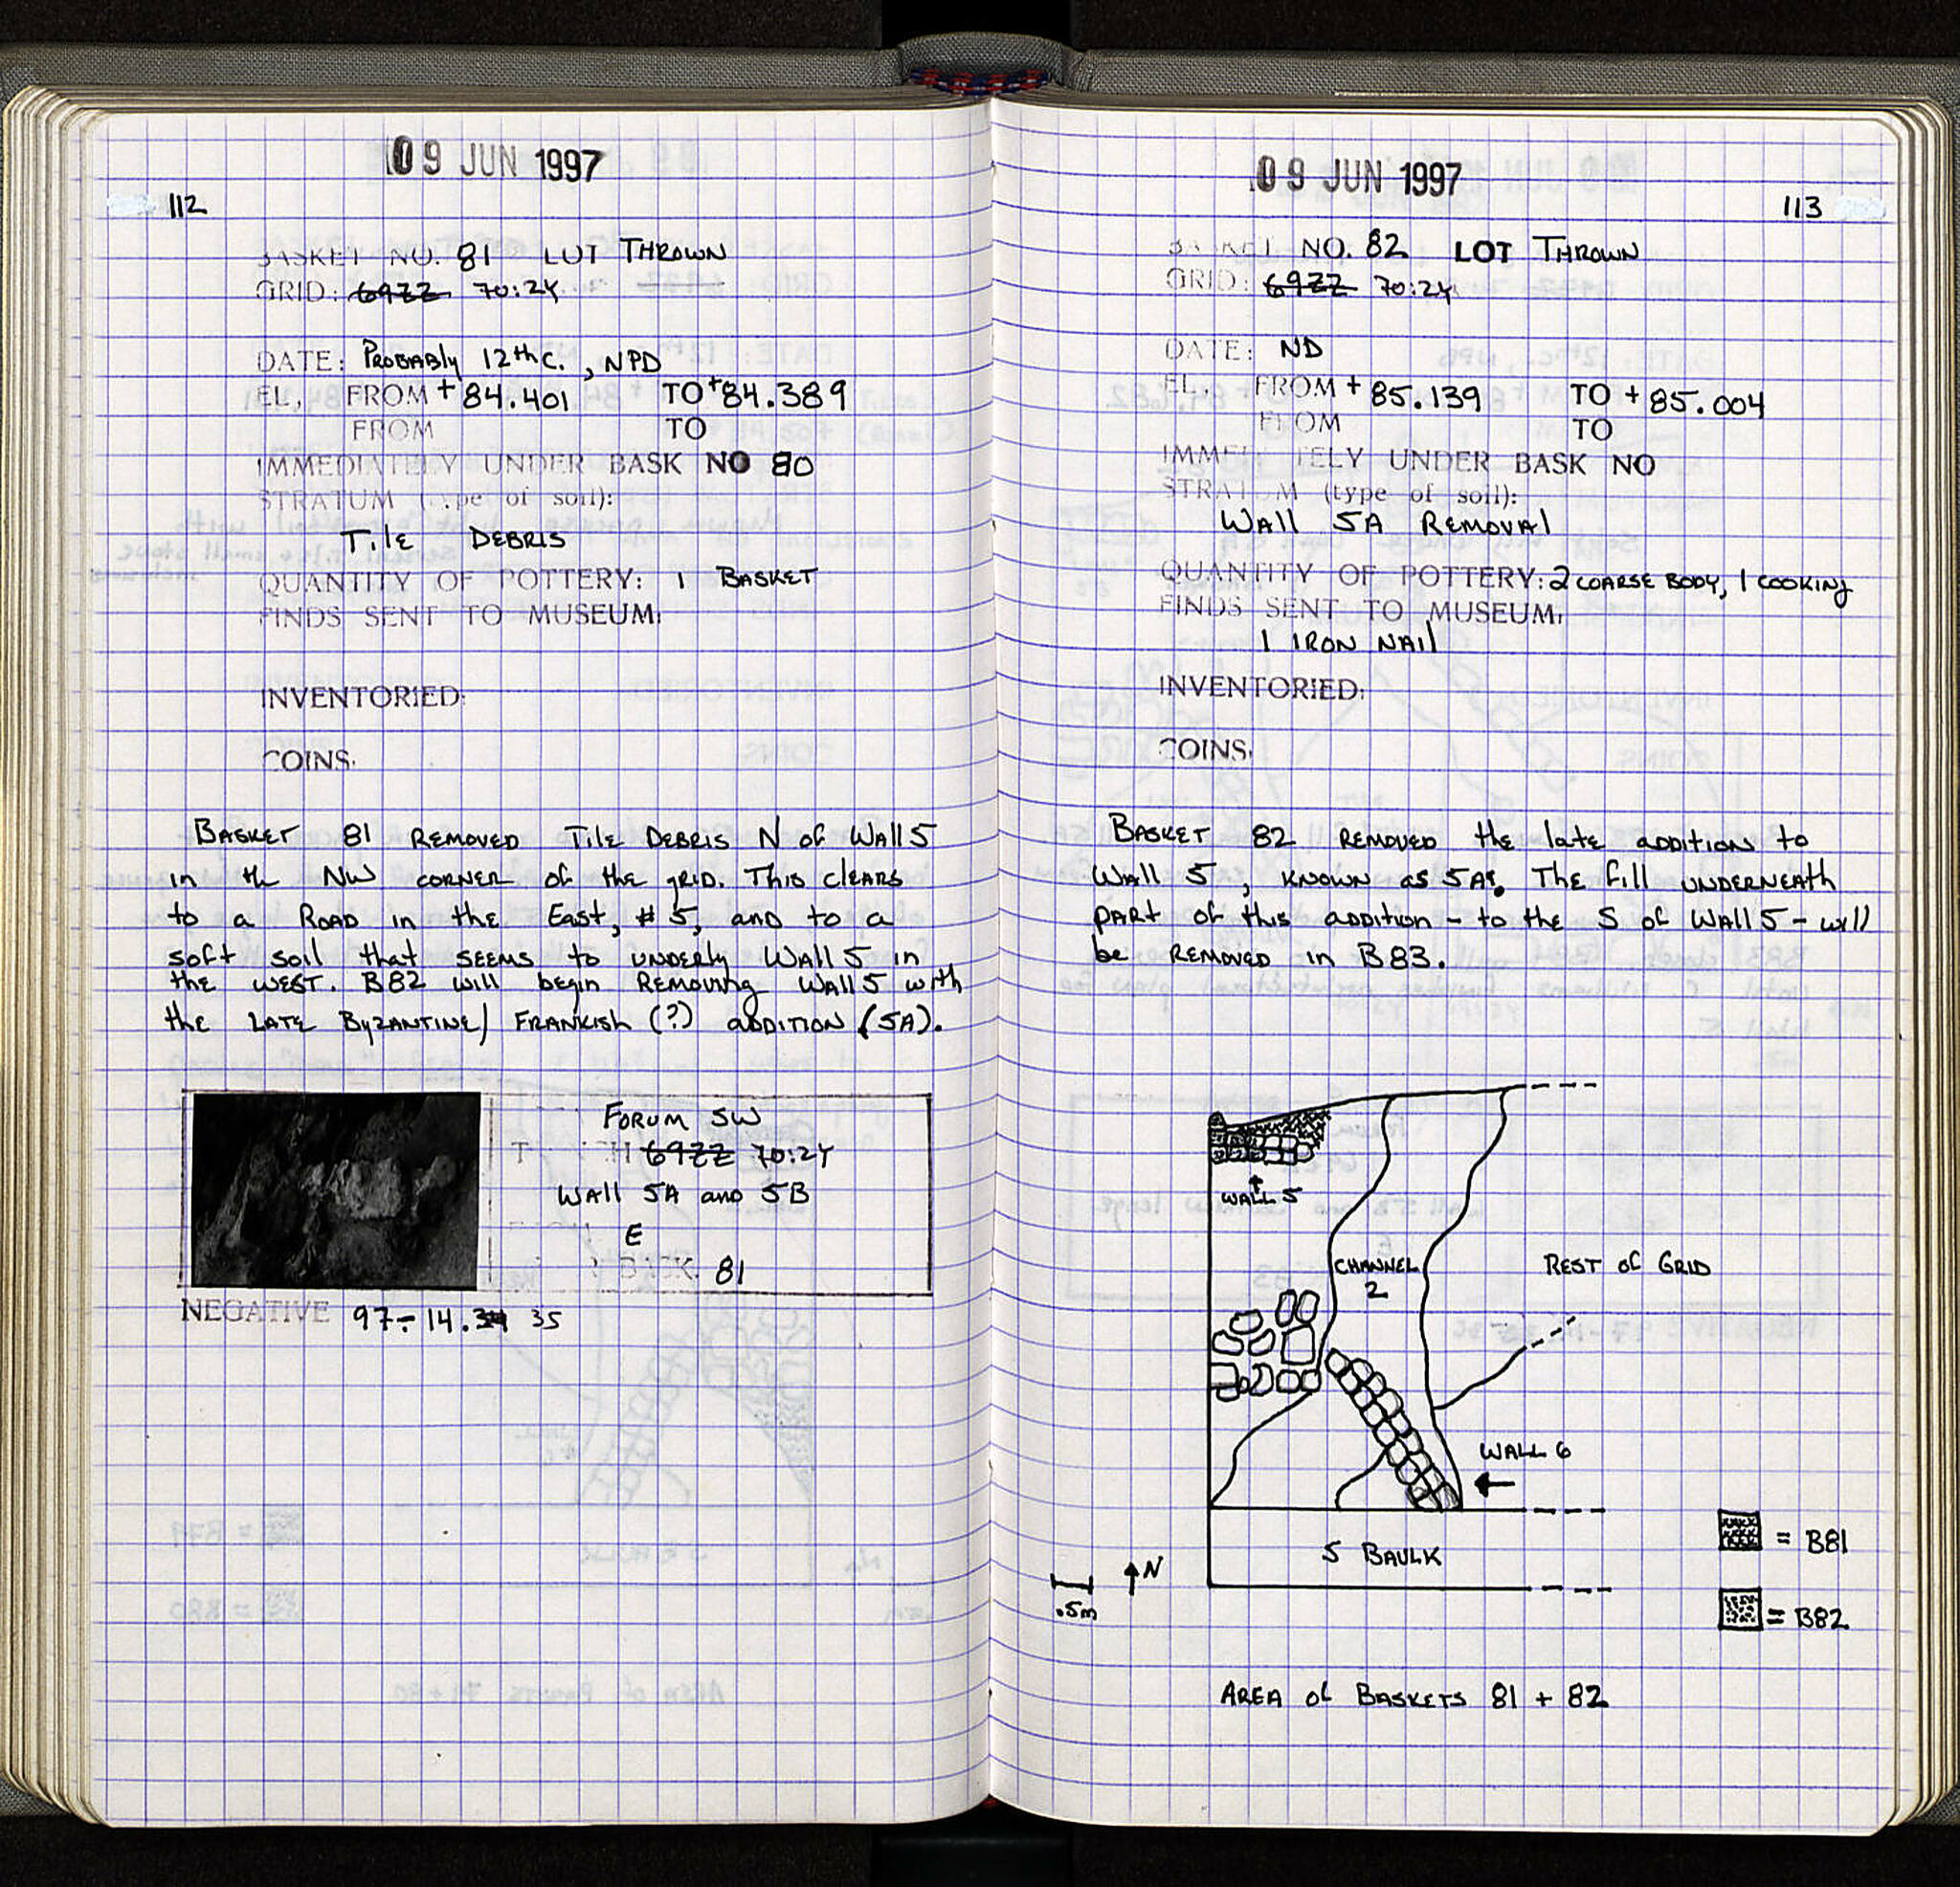 09 JUN 1997
112
BASKET NO. 81 LOT THROWN
GRID: 69ZZ 70:2Y
DATE: PROBABLY 12th C., NPD
EL, FROM +84.401 TO +84.389
FROM TO
IMMEDIATELY UNDER BASK NO 80
STRATUM (type of soil):
TILE DEBRIS
QUANTITY OF POTTERY: 1 BASKET
FINDS SENT TO MUSEUM:
INVENTORIED:
COINS.
BASKET 81 REMOVED TILE DEBRIS N of WALL 5
in th NW CORNER of the GRID. This clears
to a ROAD in the East, #5, and to a
soft soil that SEEMS to UNDERLY WALL 5 in
the WEST. B82 will begin REMOVING WALL 5 with
the LATE BYZANTINE/ FRANKISH (?) ADDITION (5A).
FORUM SW
69ZZ 70:2Y
WALL 5A and 5B
E
81
NEGATIVE 97-14. 35
09 JUN 1997
113
BASKET NO. 82 LOT THROWN
GRID: 69ZZ 70:2Y
DATE: ND
EL, FROM +85.139 TO +85.004
FROM TO
IMMEDIATELY UNDER BASK NO
STRATUM (type of soil):
WALL 5A REMOVAL
QUANTITY OF POTTERY: 2 COARSE BODY, 1 COOKING
FINDS SENT TO MUSEUM:
1 IRON NAIL
INVENTORIED:
COINS.
BASKET 82 REMOVED the late addition to
Wall 5, KNOWN as 5A. The fill UNDERNEATH
part of this addition - to the S of WALL 5 - will
be REMOVED in B83.
WALL 5
CHANNEL
2
REST of GRID
WALL 6
S BAULK
N
.5m
= B81
= B82
AREA of BASKETS 81 + 82